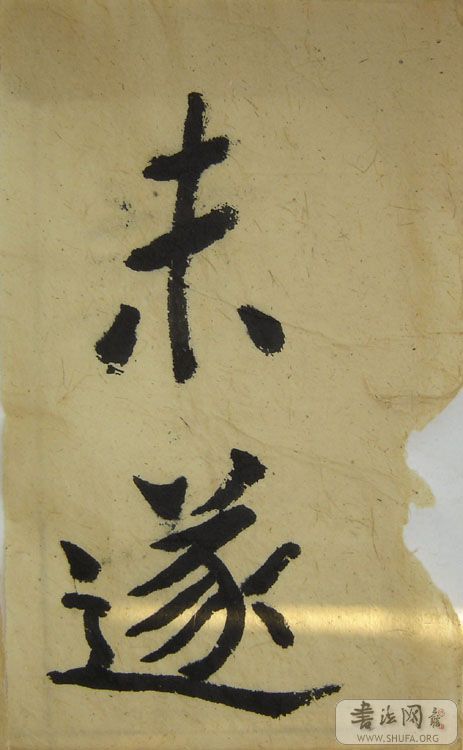 未遂
书法网
WWW.SHUFA.ORG